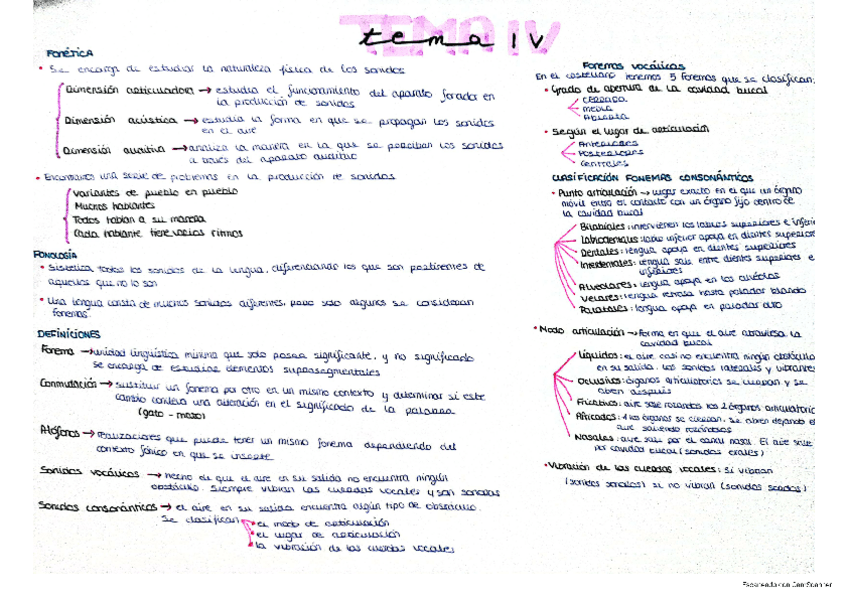 TEMA IV
tema IV
FONÉTICA
• Se encarga de estudiar la naturaleza física de los sonidos
Dimensión articulatoria → estudia el funcionamiento del aparato fonador en
la producción de sonidos
Dimensión acústica → estudia la forma en que se propagan los sonidos
en el aire
Dimensión auditiva → analiza la manera en la que se perciben los sonidos
a través del aparato auditivo
• Encontramos una serie de problemas en la producción de sonidos
Variantes de pueblo en pueblo
Muchos hablantes
Todos hablan a su manera
Cada hablante tiene varios ritmos
FONOLOGÍA
• Sistematiza todos los sonidos de la lengua, diferenciando los que son pertinentes de
aquellos que no lo son
• Una lengua consta de muchos sonidos diferentes, pero solo algunos se consideran
fonemas.
DEFINICIONES
Fonema → unidad lingüística mínima que solo posee significante, y no significado
se encarga de estudiar elementos suprasegmentales
Conmutación → sustituir un fonema por otro en un mismo contexto y determinar si este
cambio conlleva una alteración en el significado de la palabra
Alófonos → realizaciones que puede tener un mismo fonema dependiendo del
contexto fónico en que se inserte
Sonidos vocálicos → hecho de que el aire en su salida no encuentra ningún
obstáculo. Siempre vibran las cuerdas vocales y son sonoras
Sonidos consonánticos → el aire en su salida encuentra algún tipo de obstáculo.
Se clasifican
• el modo de articulación
• el lugar de articulación
• la vibración de las cuerdas vocales
Fonemas vocálicos
En el castellano tenemos 5 fonemas que se clasifican:
• Grado de apertura de la cavidad bucal
CERRADA
MEDIA
ABIERTA
• Según el lugar de articulación
Anteriores
Posteriores
Centrales
CLASIFICACIÓN FONEMAS CONSONÁNTICOS
• Punto articulación → lugar exacto en el que un órgano
móvil entra en contacto con un órgano fijo dentro de
la cavidad bucal
Bilabiales: intervienen los labios superiores e inferio
Labiodentales: labio inferior apoya en dientes superiores
Dentales: lengua apoya en dientes superiores
Interdentales: lengua sale entre dientes superiores e
inferiores
Alveolares: lengua apoya en los alvéolos
Velares: lengua retrasa hasta paladar blando
Palatales: lengua apoya en paladar alto
• Modo articulación → forma en que el aire atraviesa la
cavidad bucal
Líquidos: el aire casi no encuentra ningún obstáculo
en su salida. Los sonidos laterales y vibrantes
Oclusivos: órganos articulatorios se cierran y se
abren después
Fricativos: aire sale rozando los 2 órganos articulatorio
Africados: los órganos se cierran, se abren dejando el
aire saliendo rozándolos
Nasales: aire sale por el canal nasal. El aire sale
por cavidad bucal (sonidos orales)
• Vibración de las cuerdas vocales: si vibran
(sonidos sonoros) si no vibran (sonidos sordos)
Escaneado con CamScanner